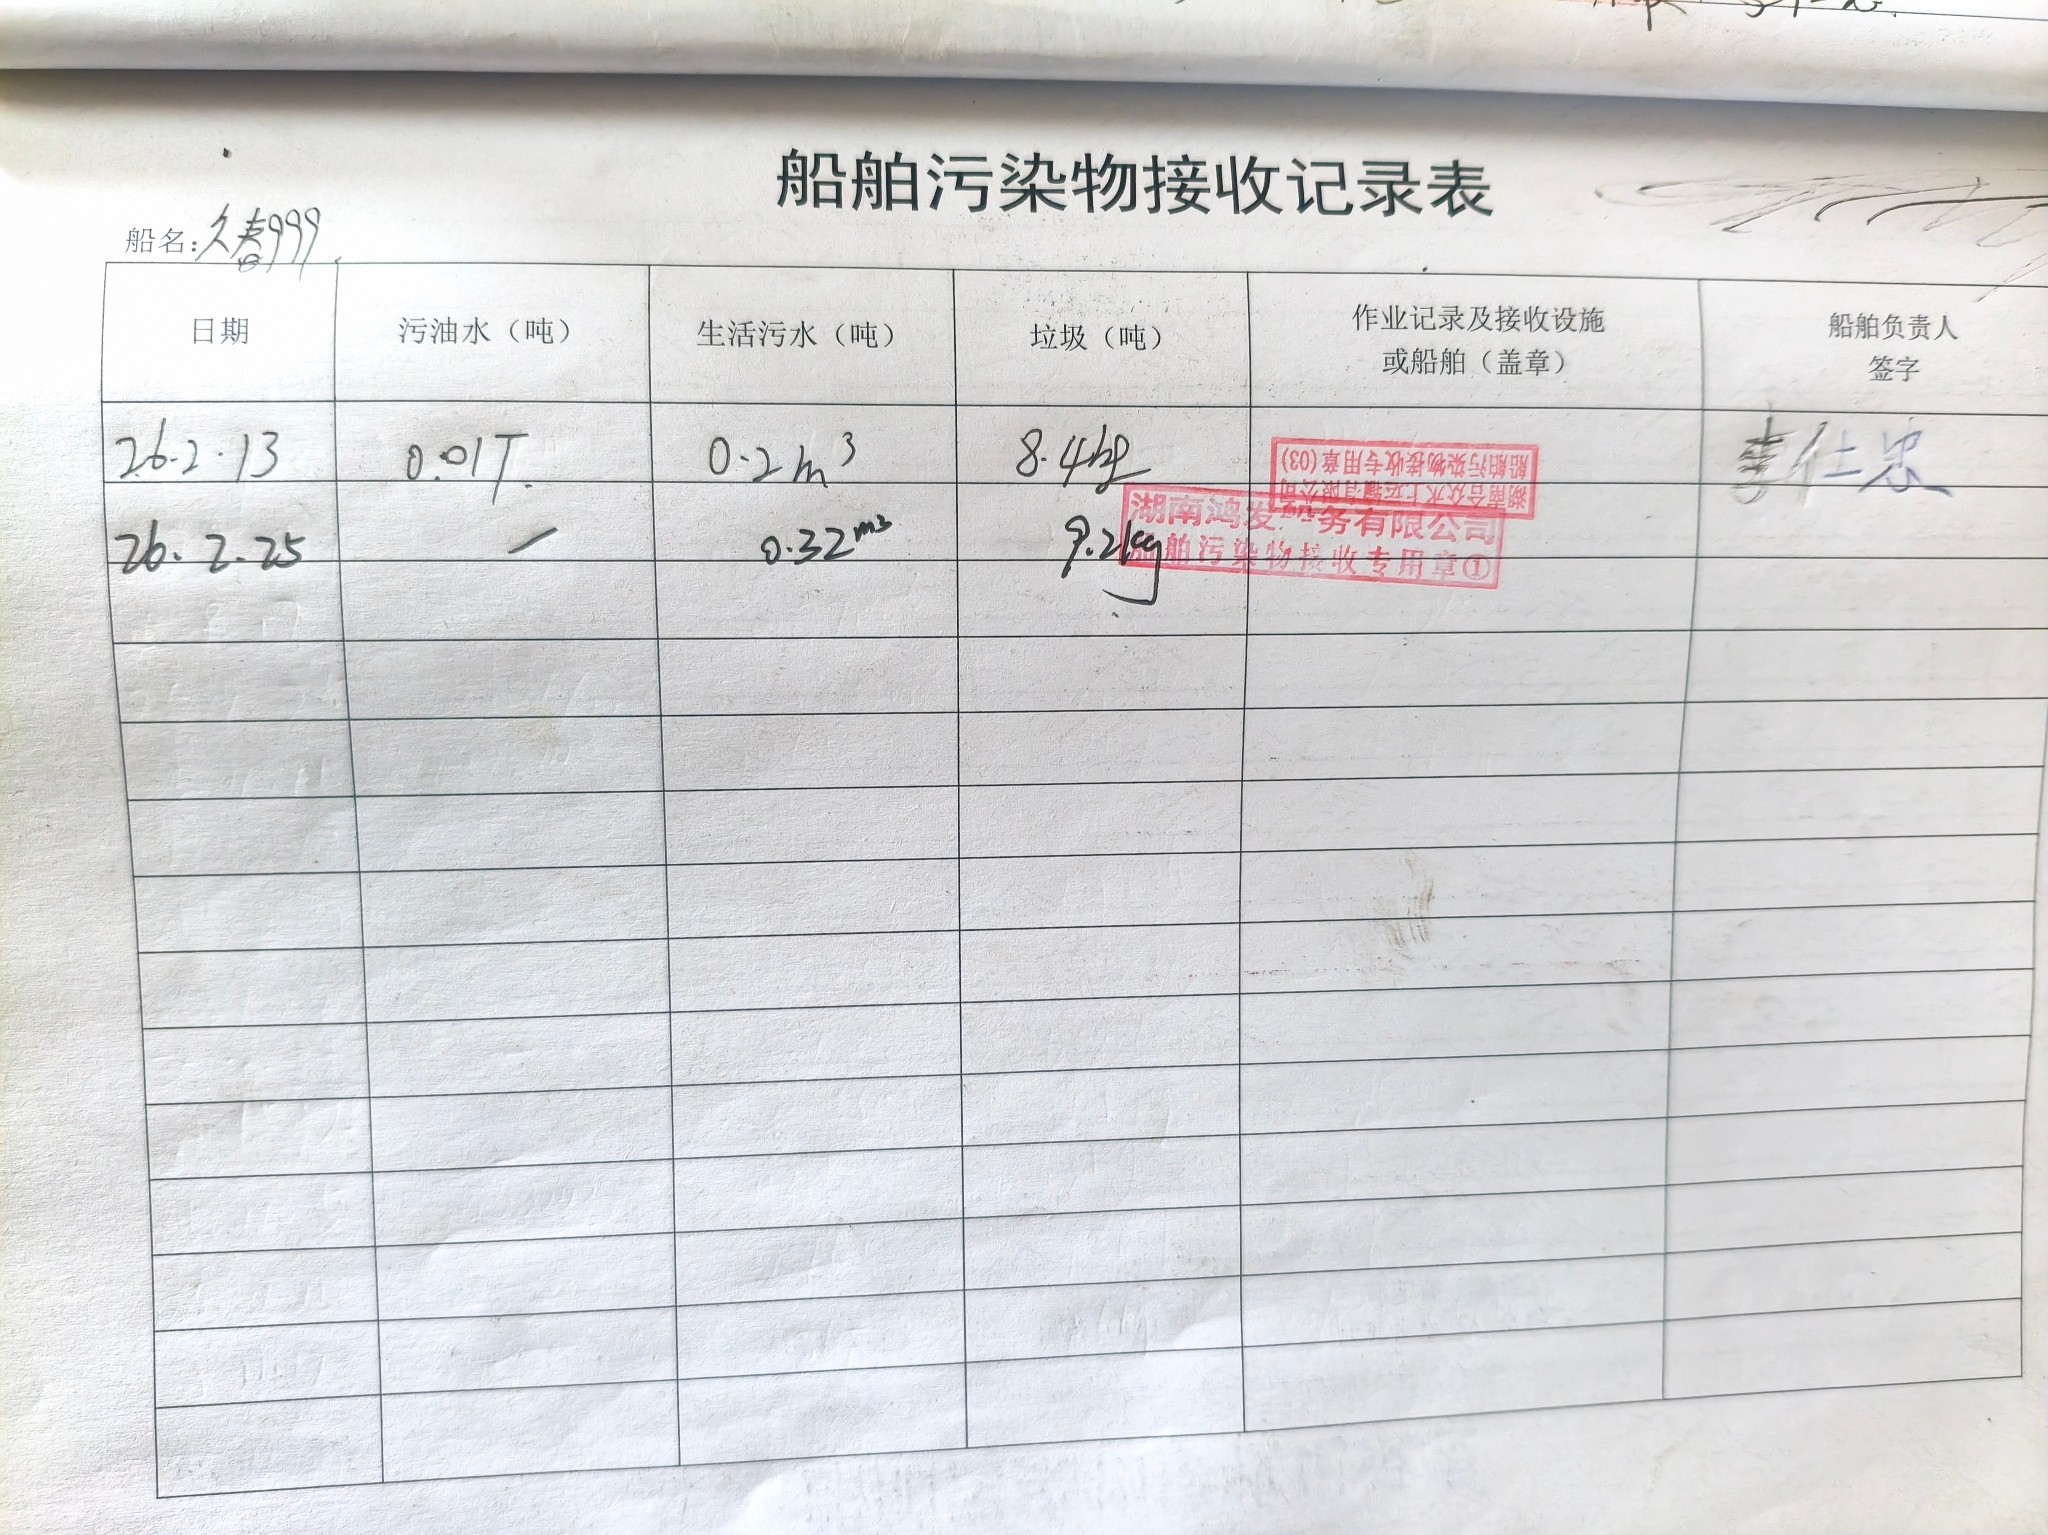 船舶污染物接收记录表
船名:久春999
日期 污油水（吨） 生活污水（吨） 垃圾（吨） 作业记录及接收设施或船舶（盖章） 船舶负责人签字
26.2.13 0.01T 0.2m³ 8.4kg 李仕忠
湖南合众水上运输有限公司
船舶污染物接收专用章(03)
26.2.25 — 0.32m³ 9.2kg
湖南鸿发 务有限公司
船舶污染物接收专用章①